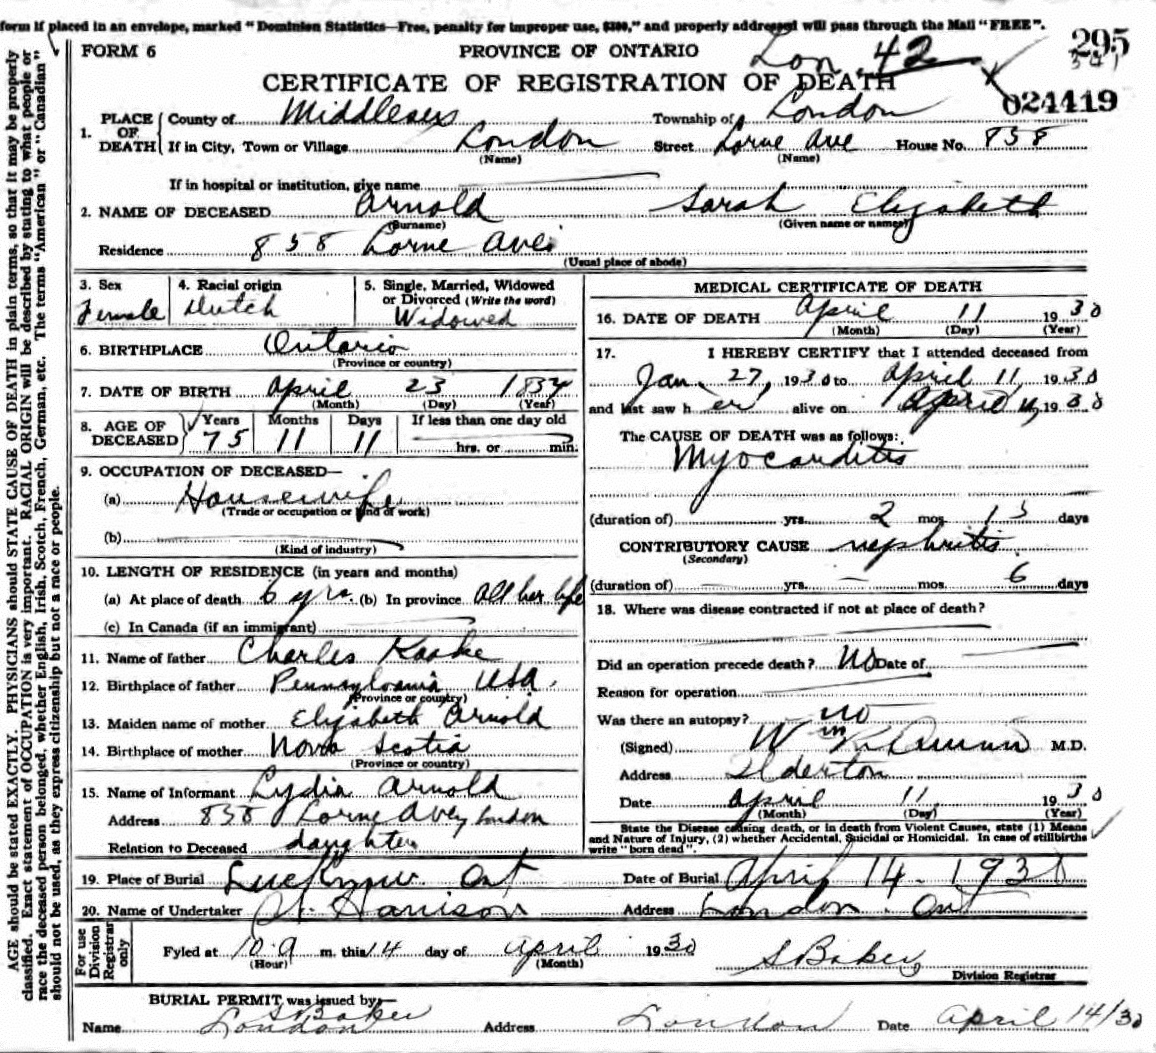 form if placed in an envelope, marked "Dominion Statistics—Free, penalty for improper use, $300," and properly addressed will pass through the Mail "FREE".
AGE should be stated EXACTLY. PHYSICIANS should STATE CAUSE OF DEATH in plain terms, so that it may be properly
classified. Exact statement of OCCUPATION is very important. RACIAL ORIGIN will be described by stating to what people or
race the deceased person belonged, whether English, Irish, Scotch, French, German, etc. The terms "American" or "Canadian"
should not be used, as they express citizenship but not a race or people.
FORM 6 PROVINCE OF ONTARIO Lon 42 295
CERTIFICATE OF REGISTRATION OF DEATH
024419
1. PLACE OF DEATH County of Middlesex Township of London
If in City, Town or Village London Street Lorne Ave House No. 838
(Name) (Name)
If in hospital or institution, give name
2. NAME OF DECEASED Arnold Sarah Elizabeth
(Surname) (Given name or names)
Residence 838 Lorne Ave
(Usual place of abode)
3. Sex Female
4. Racial origin Dutch
5. Single, Married, Widowed
or Divorced (Write the word)
Widowed
6. BIRTHPLACE Ontario
(Province or country)
7. DATE OF BIRTH April 23 1854
(Month) (Day) (Year)
8. AGE OF DECEASED Years Months Days If less than one day old
75 11 11 hrs. or min.
9. OCCUPATION OF DECEASED—
(a) Housewife
(Trade or occupation or kind of work)
(b)
(Kind of industry)
10. LENGTH OF RESIDENCE (in years and months)
(a) At place of death 6 yrs. (b) In province All her life
(c) In Canada (if an immigrant)
11. Name of father Charles
12. Birthplace of father Pennsylvania USA.
(Province or country)
13. Maiden name of mother Elizabeth Arnold
14. Birthplace of mother Nova Scotia
(Province or country)
15. Name of Informant Lydia Arnold
Address 838 Lorne Ave, London
Relation to Deceased daughter
MEDICAL CERTIFICATE OF DEATH
16. DATE OF DEATH April 11 1930
(Month) (Day) (Year)
17. I HEREBY CERTIFY that I attended deceased from
Jan. 27, 1930 to April 11, 1930
and last saw her alive on April 1930
The CAUSE OF DEATH was as follows:
Myocarditis
(duration of) yrs. 2 mos. 13 days
CONTRIBUTORY CAUSE nephritis.
(Secondary)
(duration of) yrs. mos. 6 days
18. Where was disease contracted if not at place of death?
Did an operation precede death? No Date of
Reason for operation
Was there an autopsy? no
(Signed) Wm M.D.
Address Ilderton
Date April 11, 1930
(Month) (Day) (Year)
State the Disease causing death, or in death from Violent Causes, state (1) Means
and Nature of Injury, (2) whether Accidental, Suicidal or Homicidal. In case of stillbirths
write "born dead".
19. Place of Burial Lucknow Ont Date of Burial April 14. 1930
20. Name of Undertaker Harrison Address London. Ont
For use Division Registrar only
Fyled at 10.a m. this 14 day of April 1930 S Baker
(Hour) (Month) Division Registrar
BURIAL PERMIT was issued by—
S Baker
Name London Address London Date April 14/30